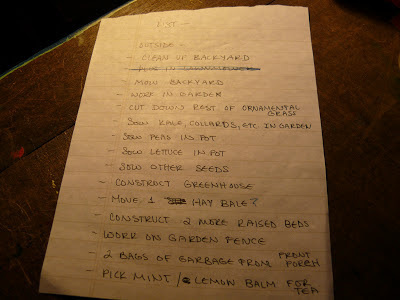 LIST -
OUTSIDE -
- CLEAN UP BACKYARD
- MOW BACKYARD
- WORK IN GARDEN
- CUT DOWN REST OF ORNAMENTAL GRASS
- SOW KALE, COLLARDS, ETC. IN GARDEN
- SOW PEAS IN POT
- SOW LETTUCE IN POT
- SOW OTHER SEEDS
- CONSTRUCT GREENHOUSE
- MOVE 1 HAY BALE?
- CONSTRUCT 2 MORE RAISED BEDS
- WORK ON GARDEN FENCE
- 2 BAGS OF GARBAGE FROM FRONT PORCH
- PICK MINT / LEMON BALM FOR TEA